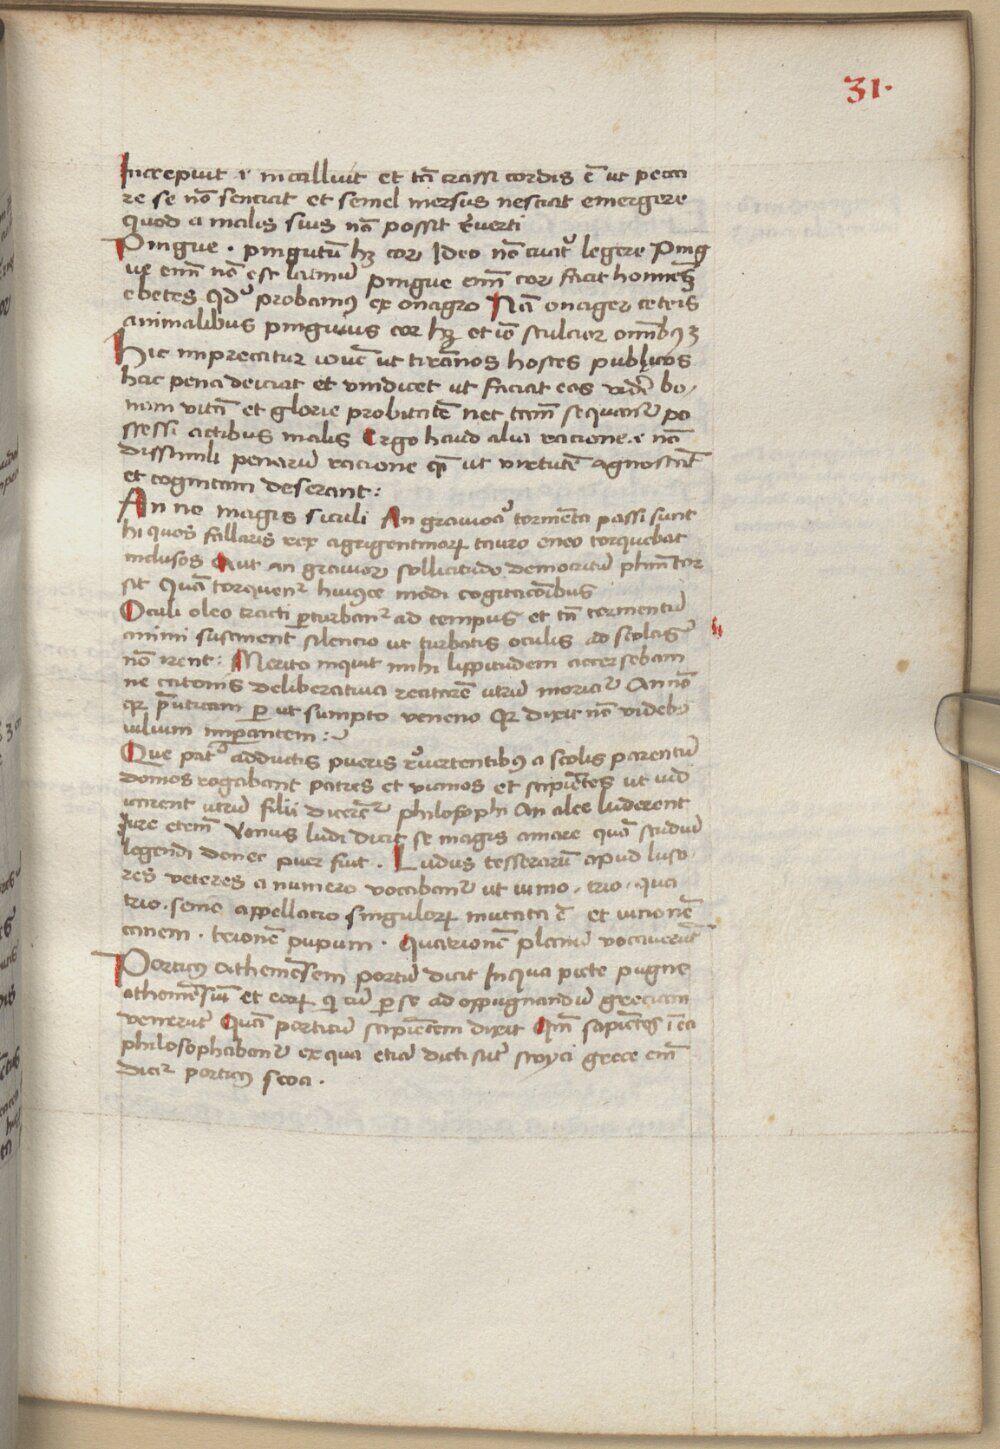 31.
Increpuit .i. incalluit et tā crassi cordis ē ut pecca
re se nō senciat et semel mersus nesciat emergere
quod a malis suis nō possit rēverti
Pingue . pinguitū hꝫ cor Ideo nō curatᷣ legere Ping
ue enī nō est latinū pingue enī cor facit homines
ebetes qd probamꝰ ex onagro Nā onager ceteris
animalibus pinguius cor hꝫ et iō stulcior omībꝰ
hic imprecatur iovē ut tirānos hostes publicos
hac pena deiciat et vindicet ut faciat eos vidēr bo
nam vitā et glorie probitatē nec tam̄ sequantᷣ po
ssessi actibus malis Ergo haud alia racione .i. nō
dissimili penarū racione quā ut virtutē agnoscāt
et cognitam deserant :
An ne magis siculi An graviora tormēta passi sunt
hi quos fallaris rex agrigentinorꝫ tauro eneo torquebat
inclusos Aut an gravior sollicitudo democritū
sit Quā torquenᷣ huiusce modi cogitacōibus
Oculi oleo tracti ꝑturbanᷣ ad tempus et tn̄ tormentū
animi sustinent silencio ut turbatis oculis ad scolas
nō irent : Merito inquit mihi lippitudem accersebam
ne catonis deliberativa recitarē utrū moriar An nō
ꝑ ut sumpto veneno qꝛ dixit nō videbo
iulium imꝑantem :
Que patᷣ adductis pueris rēvertentibꝰ a scolis parentū
domos rogabant patres et vicinos et sapiētes ut iud
icarent utrū filii dicerēt philosophi An alee luderent
Iure etem̄ Venus ludi dicit se magis amare quā studiū
legendi donec puer fuit . Ludus tesserarū apud luso
res veteres a numero vocabanᷣ ut unio . trio . qua
trio . senio appellacio singulorꝫ mutata ē et unionē
canem . trionē pupum . Quatrionē planū vocaverūt
Porticꝰ Atheniēsem portū dicit In qua picte pugne
atheniēsiū et eorꝫ qi cū ꝑse ad oppugnandū greciam
venerūt Quā porticū sapientem dixit Qm̄ sapiētes ī ea
philosophabanᷣ ex qua etiā dicti sūt stoyci grece enī
dicᷣ porticꝰ stoa .